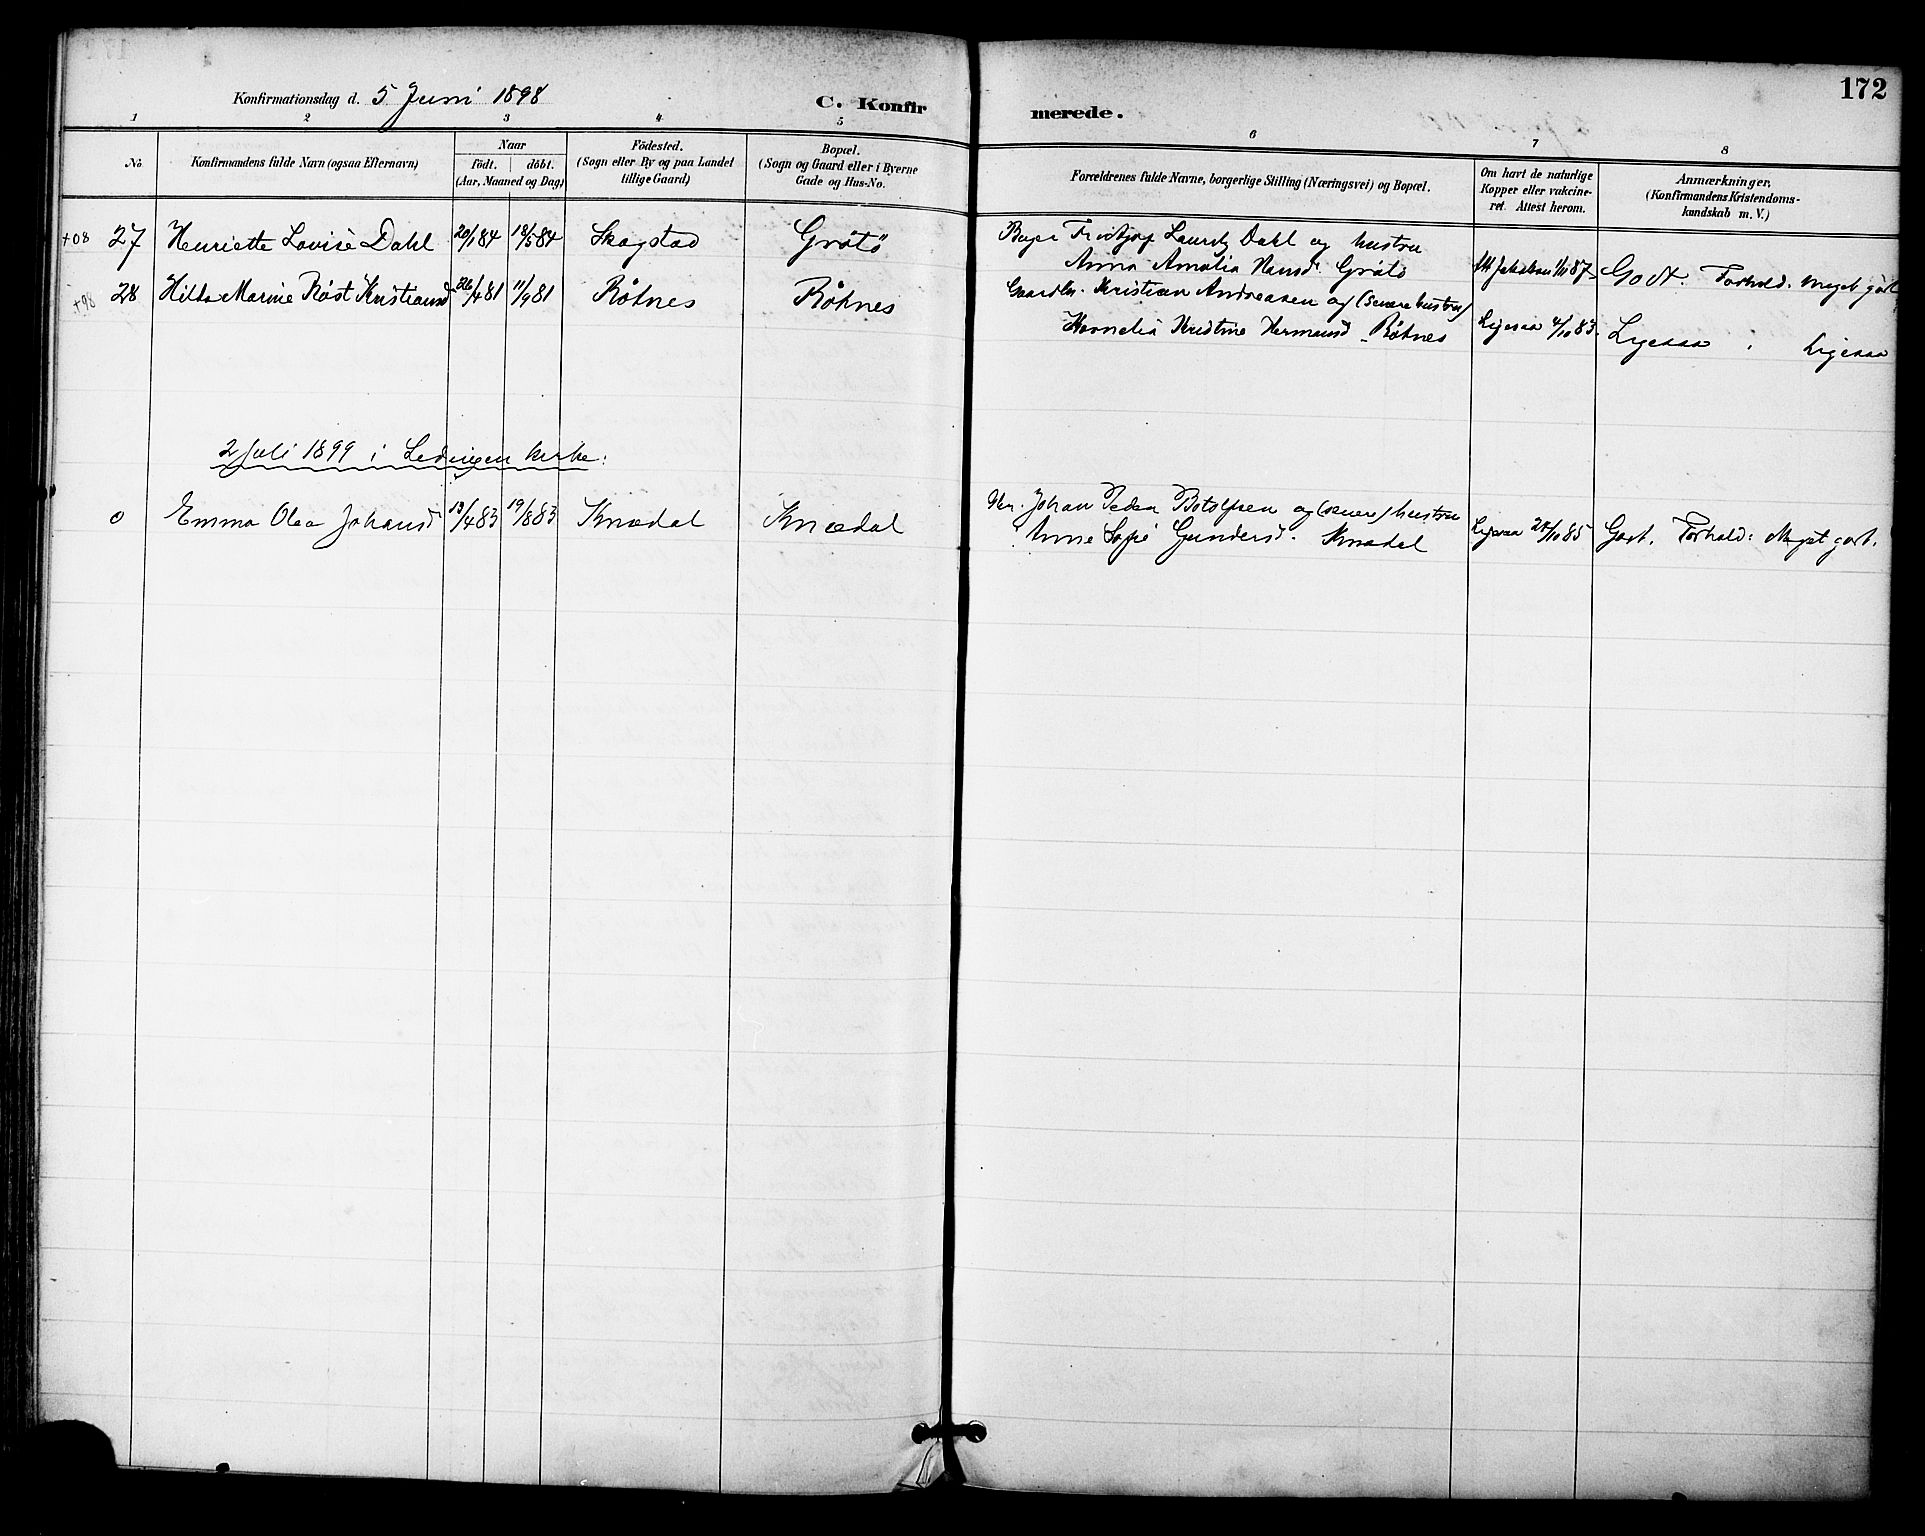 172
Konfirmationsdag d. 5 Juni 1898
C. Konfirmerede.
1 2 3 4 5 6 7 8
No
Konfirmandens fulde Navn (ogsaa Efternavn)
Naar
födt. döbt.
(Aar, Maaned og Dag)
Födested.
(Sogn eller By og paa Landet
tillige Gaard)
Bopæl.
(Sogn og Gaard eller i Byerne
Gade og Hus-No.
Forældrenes fulde Navne, borgerlige Stilling (Næringsvei) og Bopæl.
Om havt de naturlige
Kopper eller vakcine-
ret. Attest herom.
Anmærkninger,
(Konfirmandens Kristendoms-
kundskab m. V.)
+08 27 Henriette Lovise Dahl 20/1 84 18/5 84 Skagstad Grøtø Fridtjof Lauritz Dahl og hustru
Anna Amalia Hansd. Grøtø Jakobsen 1/11 87 Godt. Forhold. meget godt
+98 28 Hilda Marine Røst Kristiansd 26/4 81 11/9 81 Røtnes Røtnes Gaardbr. Kristian Andreasen og (senere hustru)
Kornelia Kristine Hermansd. Røtnes Ligesaa 4/10 83. Ligesaa : Ligesaa
2 Juli 1899 i Ledingen kirke:
0 Emma Olea Johansd 13/4 83 19/8 83 Knædal Knædal Johan Peder Botolfsen og (senere) hustru
Anne Sofie Gundersd. Knædal Ligesaa 28/10 85 Godt. Forhold: Meget godt.